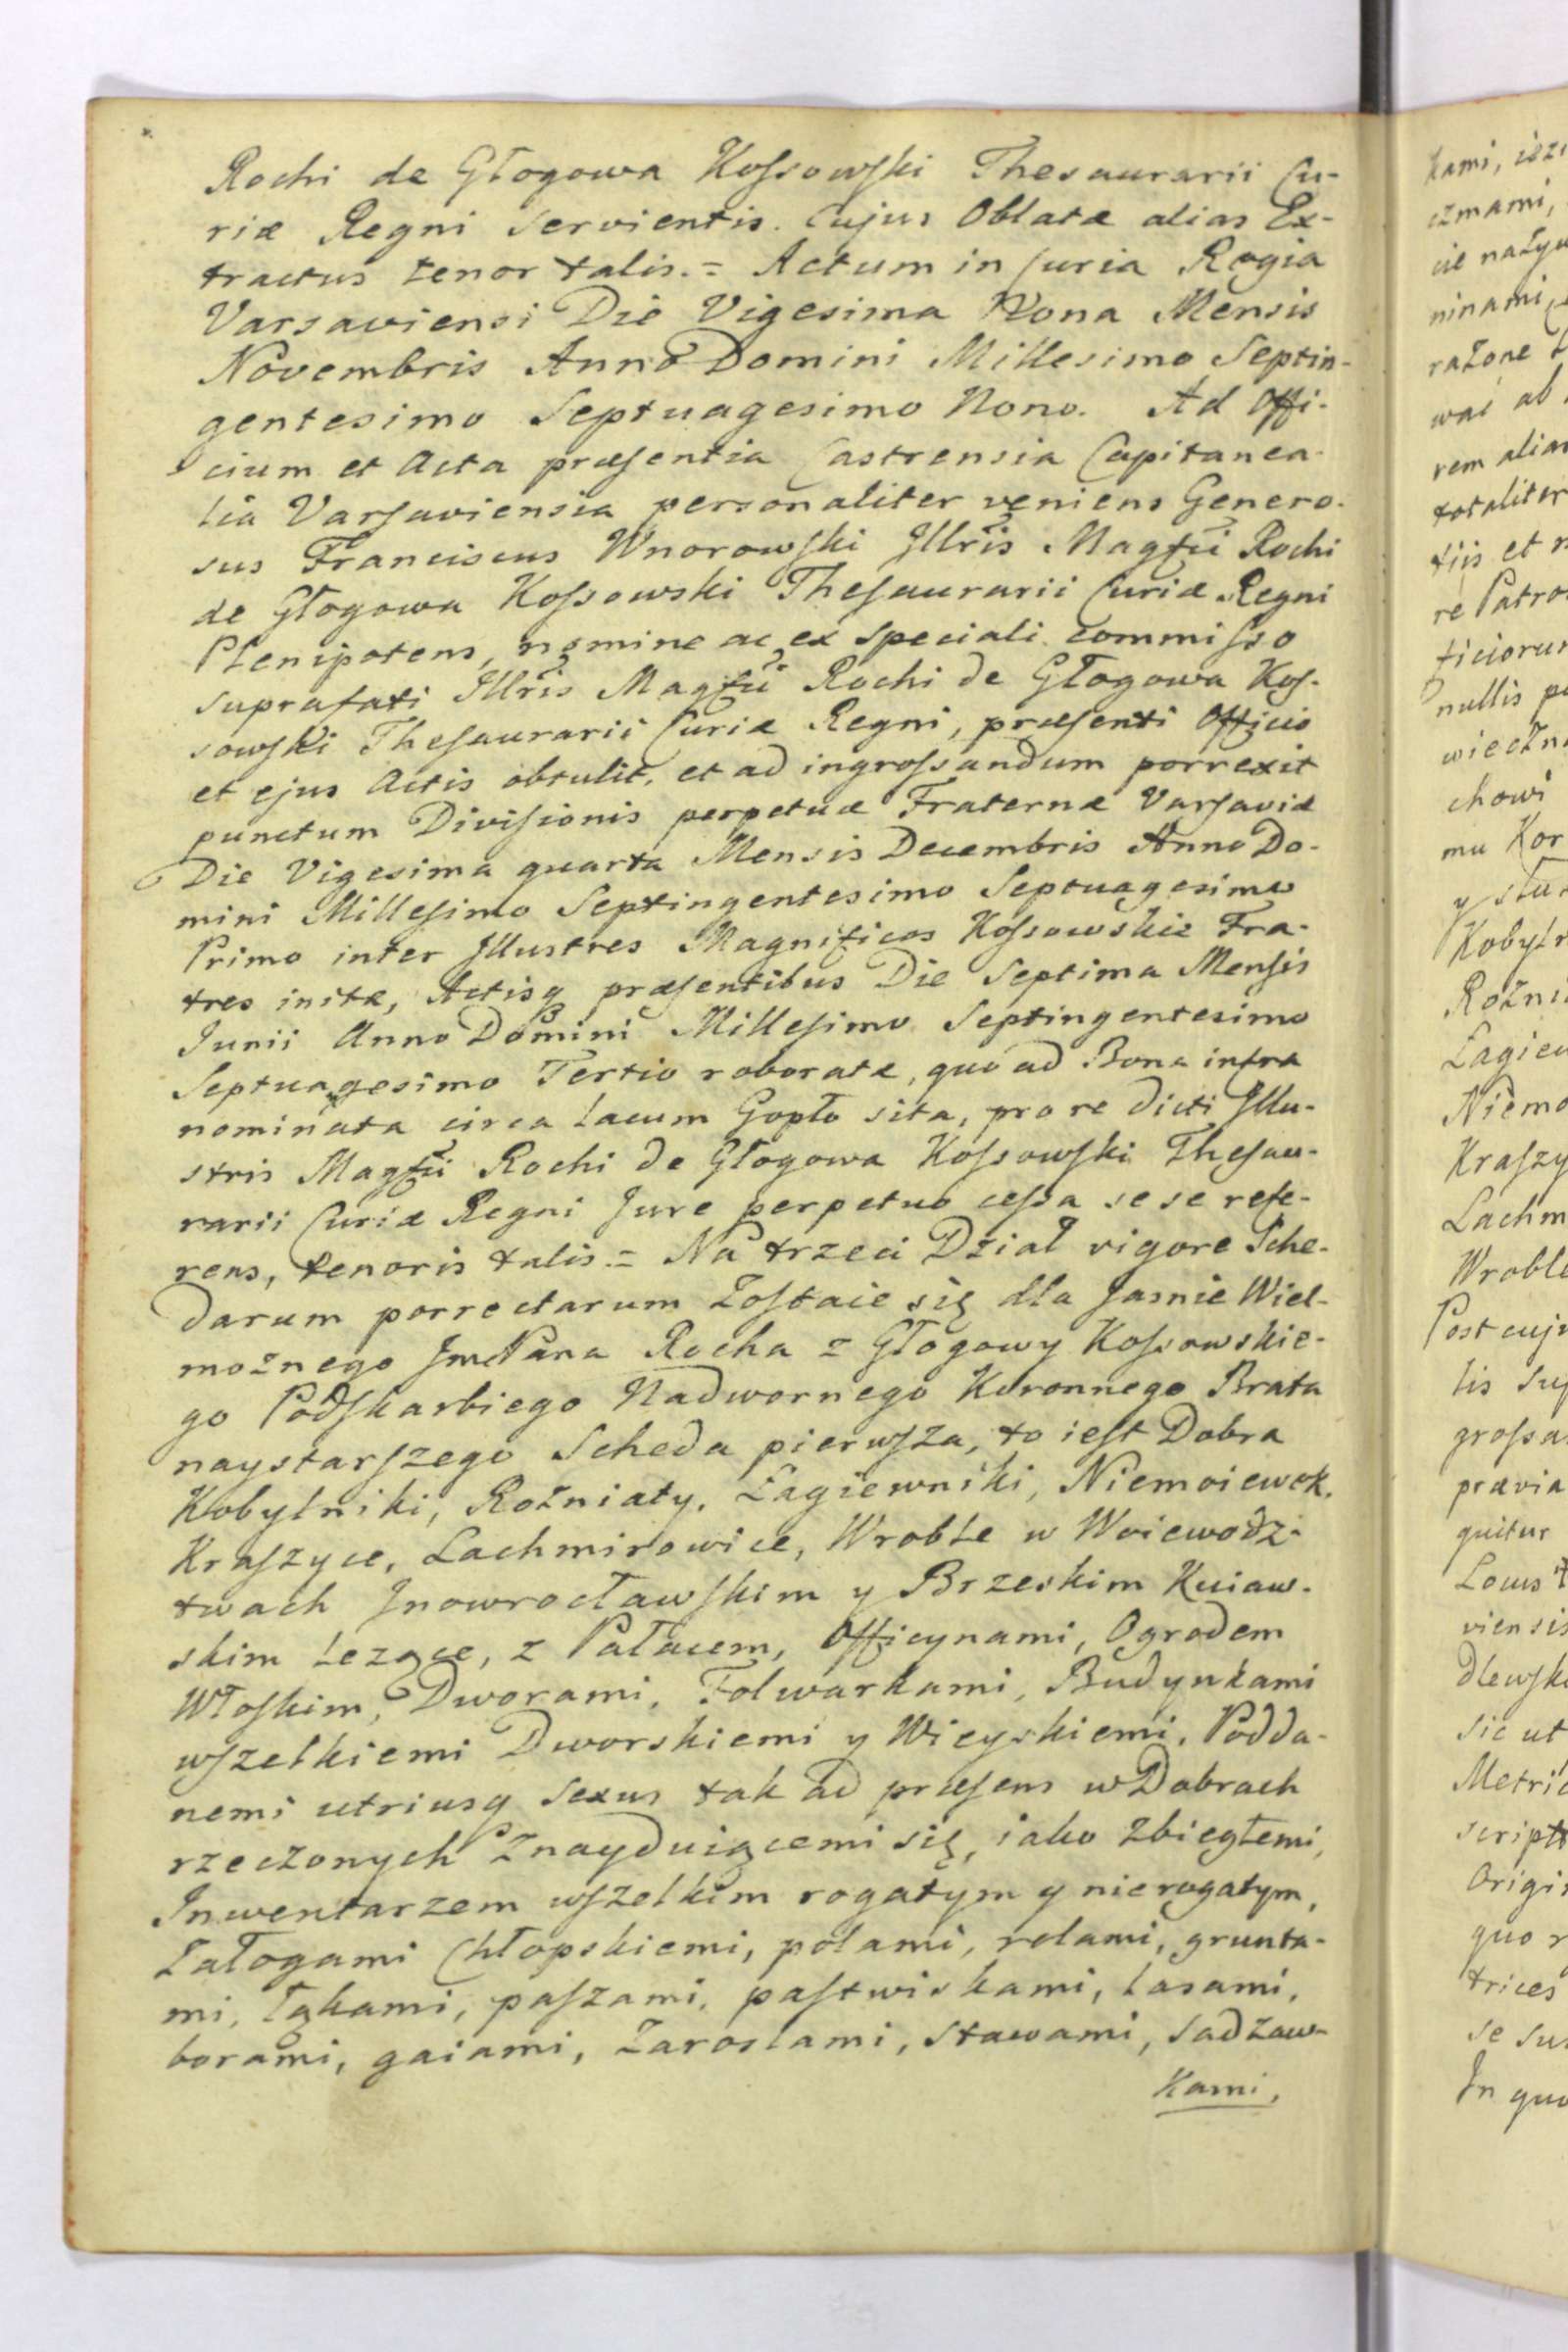 Rochi de Głogowa Kossowski Thesaurarii Cu-
riæ Regni Servientis. Cujus Oblatæ alias Ex-
tractus tenor talis. = Actum in Curia Regia
Varsaviensi Die Vigesima Nona Mensis
Novembris Anno Domini Millesimo Septin-
gentesimo Septuagesimo Nono. Ad Offi-
cium et Acta præsentia Castrensia Capitanea-
lia Varsaviensia personaliter veniens Genero-
sus Franciscus Wnorowski Illris Magfci Rochi
de Głogowa Kossowski Thesaurarii Curiæ Regni
Plenipotens, nomine ac ex speciali commisso
suprafati Illris Magfci Rochi de Głogowa Kos-
sowski Thesaurarii Curiæ Regni, præsenti Officio
et ejus Actis obtulit, et ad ingrossandum porrexit
punctum Divisionis perpetuæ Fraternæ Varsaviæ
Die Vigesima quarta Mensis Decembris Anno Do-
mini Millesimo Septingentesimo Septuagesimo
Primo inter Illustres Magnificos Kossowskie Fra-
tres initæ, Actisq præsentibus Die Septima Mensis
Junii Anno Domini Millesimo Septingentesimo
Septuagesimo Tertio roboratæ, quo ad Bona infra
nominata circa lacum Gopło sita, pro re dicti Illu-
stris Magfci Rochi de Głogowa Kossowski Thesau-
rarii Curiæ Regni Jure perpetuo cessa se se refe-
rens, tenoris talis = Na trzeci Dział vigore Sche-
darum porrectarum Zostaie się dla Jasnie Wiel-
możnego JmcPana Rocha z Głogowy Kossowskie-
go Podskarbiego Nadwornego Koronnego Brata
naystarszego Scheda pierwsza, to iest Dobra
Kobylniki, Rożniaty, Łagiewniki, Niemoiewek,
Kraszyce, Lachmirowice, Wroble w Woiewodz-
twach Inowrocławskim y Brzeskim Kuiaw-
skim leżące, z Pałacem, Officynami, Ogrodem
Włoskim, Dworami, Folwarkami, Budynkami
wszelkiemi Dworskiemi y Wieyskiemi, Podda-
nemi utriusq sexus tak ad præsens w Dobrach
rzeczonych Znayduiącemi się, iako Zbiegłemi,
Inwentarzem wszelkim rogatym y nierogatym,
Załogami Chłopskiemi, polami, rolami, grunta-
mi, łąkami, paszami, pastwiskami, lasami,
borami, gaiami, Zaroslami, stawami, sadzaw-
kami,
kami,
czmami,
rem alias
totaliter
re Patro
ticiorum
nullis
chowi
mu Kor
Kobyln
Rożni
Łagiew
Niemo
Kraszy
Lachm
Wroble
Post cuju
lis Sup
grossa
prævia
quitur
viensis
dlewsk
Sic ut
Metric
script
Origin
quo
trices
se sus
In quo